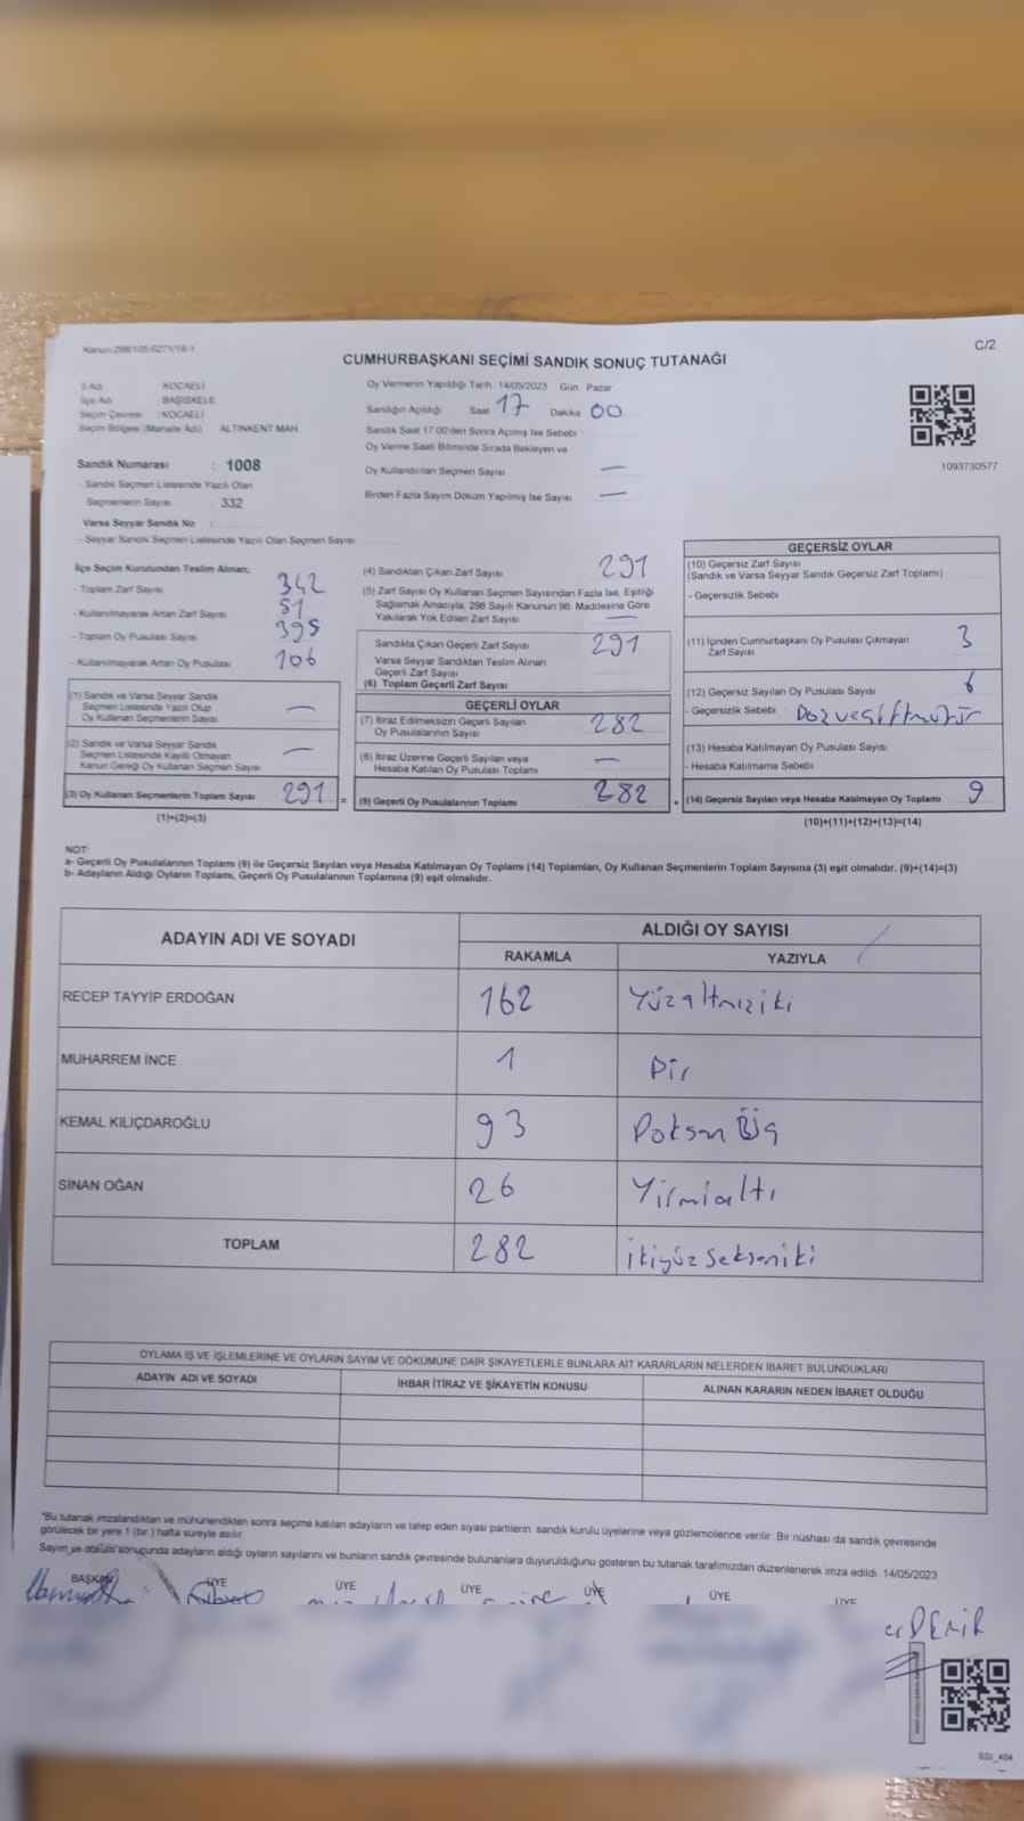 C/2
CUMHURBAŞKANI SEÇİMİ SANDIK SONUÇ TUTANAĞI
İl Adı : KOCAELİ
İlçe Adı : BAŞİSKELE
Seçim Çevresi : KOCAELİ
Seçim Bölgesi (Mahalle Adı) ALTINKENT MAH.
Sandık Numarası : 1008
Sandık Seçmen Listesinde Yazılı Olan
Seçmenlerin Sayısı 332
Varsa Seyyar Sandık No :
- Seyyar Sandık Seçmen Listesinde Yazılı Olan Seçmen Sayısı
Oy Vermenin Yapıldığı Tarih: 14/05/2023 Gün Pazar
Sandığın Açıldığı Saat 17 Dakika 00
Sandık Saat 17.00'den Sonra Açılmış İse Sebebi
Oy Verme Saati Bitiminde Sırada Bekleyen ve
Oy Kullandırılan Seçmen Sayısı —
Birden Fazla Sayım Döküm Yapılmış İse Sayısı —
1093730577
İlçe Seçim Kurulundan Teslim Alınan;
- Toplam Zarf Sayısı 342
- Kullanılmayarak Artan Zarf Sayısı 51
- Toplam Oy Pusulası Sayısı 395
- Kullanılmayarak Artan Oy Pusulası 106
(1) Sandık ve Varsa Seyyar Sandık
Seçmen Listesinde Yazılı Olup
Oy Kullanan Seçmenlerin Sayısı —
(2) Sandık ve Varsa Seyyar Sandık
Seçmen Listesinde Kayıtlı Olmayan
Kanun Gereği Oy Kullanan Seçmen Sayısı —
(3) Oy Kullanan Seçmenlerin Toplam Sayısı 291 =
(1)+(2)=(3)
(4) Sandıktan Çıkan Zarf Sayısı 291
(5) Zarf Sayısı Oy Kullanan Seçmen Sayısından Fazla İse, Eşitliği
Sağlamak Amacıyla, 298 Sayılı Kanunun 98. Maddesine Göre
Yakılarak Yok Edilen Zarf Sayısı —
Sandıkta Çıkan Geçerli Zarf Sayısı 291
Varsa Seyyar Sandıktan Teslim Alınan
Geçerli Zarf Sayısı
(6) Toplam Geçerli Zarf Sayısı
GEÇERLİ OYLAR
(7) İtiraz Edilmeksizin Geçerli Sayılan
Oy Pusulalarının Sayısı 282
(8) İtiraz Üzerine Geçerli Sayılan veya
Hesaba Katılan Oy Pusulası Toplamı —
(9) Geçerli Oy Pusulalarının Toplamı 282
GEÇERSİZ OYLAR
(10) Geçersiz Zarf Sayısı
(Sandık ve Varsa Seyyar Sandık Geçersiz Zarf Toplamı)
- Geçersizlik Sebebi
(11) İçinden Cumhurbaşkanı Oy Pusulası Çıkmayan
Zarf Sayısı 3
(12) Geçersiz Sayılan Oy Pusulası Sayısı 6
- Geçersizlik Sebebi
(13) Hesaba Katılmayan Oy Pusulası Sayısı
- Hesaba Katılmama Sebebi
+ (14) Geçersiz Sayılan veya Hesaba Katılmayan Oy Toplamı 9
(10)+(11)+(12)+(13)=(14)
NOT:
a- Geçerli Oy Pusulalarının Toplamı (9) ile Geçersiz Sayılan veya Hesaba Katılmayan Oy Toplamı (14) Toplamları, Oy Kullanan Seçmenlerin Toplam Sayısına (3) eşit olmalıdır. (9)+(14)=(3)
b- Adayların Aldığı Oyların Toplamı, Geçerli Oy Pusulalarının Toplamına (9) eşit olmalıdır.
ADAYIN ADI VE SOYADI
ALDIĞI OY SAYISI
RAKAMLA YAZIYLA
RECEP TAYYİP ERDOĞAN 162 Yüzaltmışiki
MUHARREM İNCE 1 Bir
KEMAL KILIÇDAROĞLU 93 Doksan Üç
SİNAN OĞAN 26 Yirmialtı
TOPLAM 282 İkiyüz Sekseniki
OYLAMA İŞ VE İŞLEMLERİNE VE OYLARIN SAYIM VE DÖKÜMÜNE DAİR ŞİKAYETLERLE BUNLARA AİT KARARLARIN NELERDEN İBARET BULUNDUKLARI
ADAYIN ADI VE SOYADI İHBAR İTİRAZ VE ŞİKAYETİN KONUSU ALINAN KARARIN NEDEN İBARET OLDUĞU
*Bu tutanak imzalandıktan ve mühürlendikten sonra seçime katılan adayların ve talep eden siyasi partilerin sandık kurulu üyelerine veya gözlemcilerine verilir. Bir nüshası da sandık çevresinde
görülecek bir yere 1 (bir) hafta süreyle asılır.
Sayım ve dökümü sonucunda adayların aldığı oyların sayılarını ve bunların sandık çevresinde bulunanlara duyurulduğunu gösteren bu tutanak tarafımızdan düzenlenerek imza edildi. 14/05/2023
BAŞKAN ÜYE ÜYE ÜYE ÜYE ÜYE ÜYE